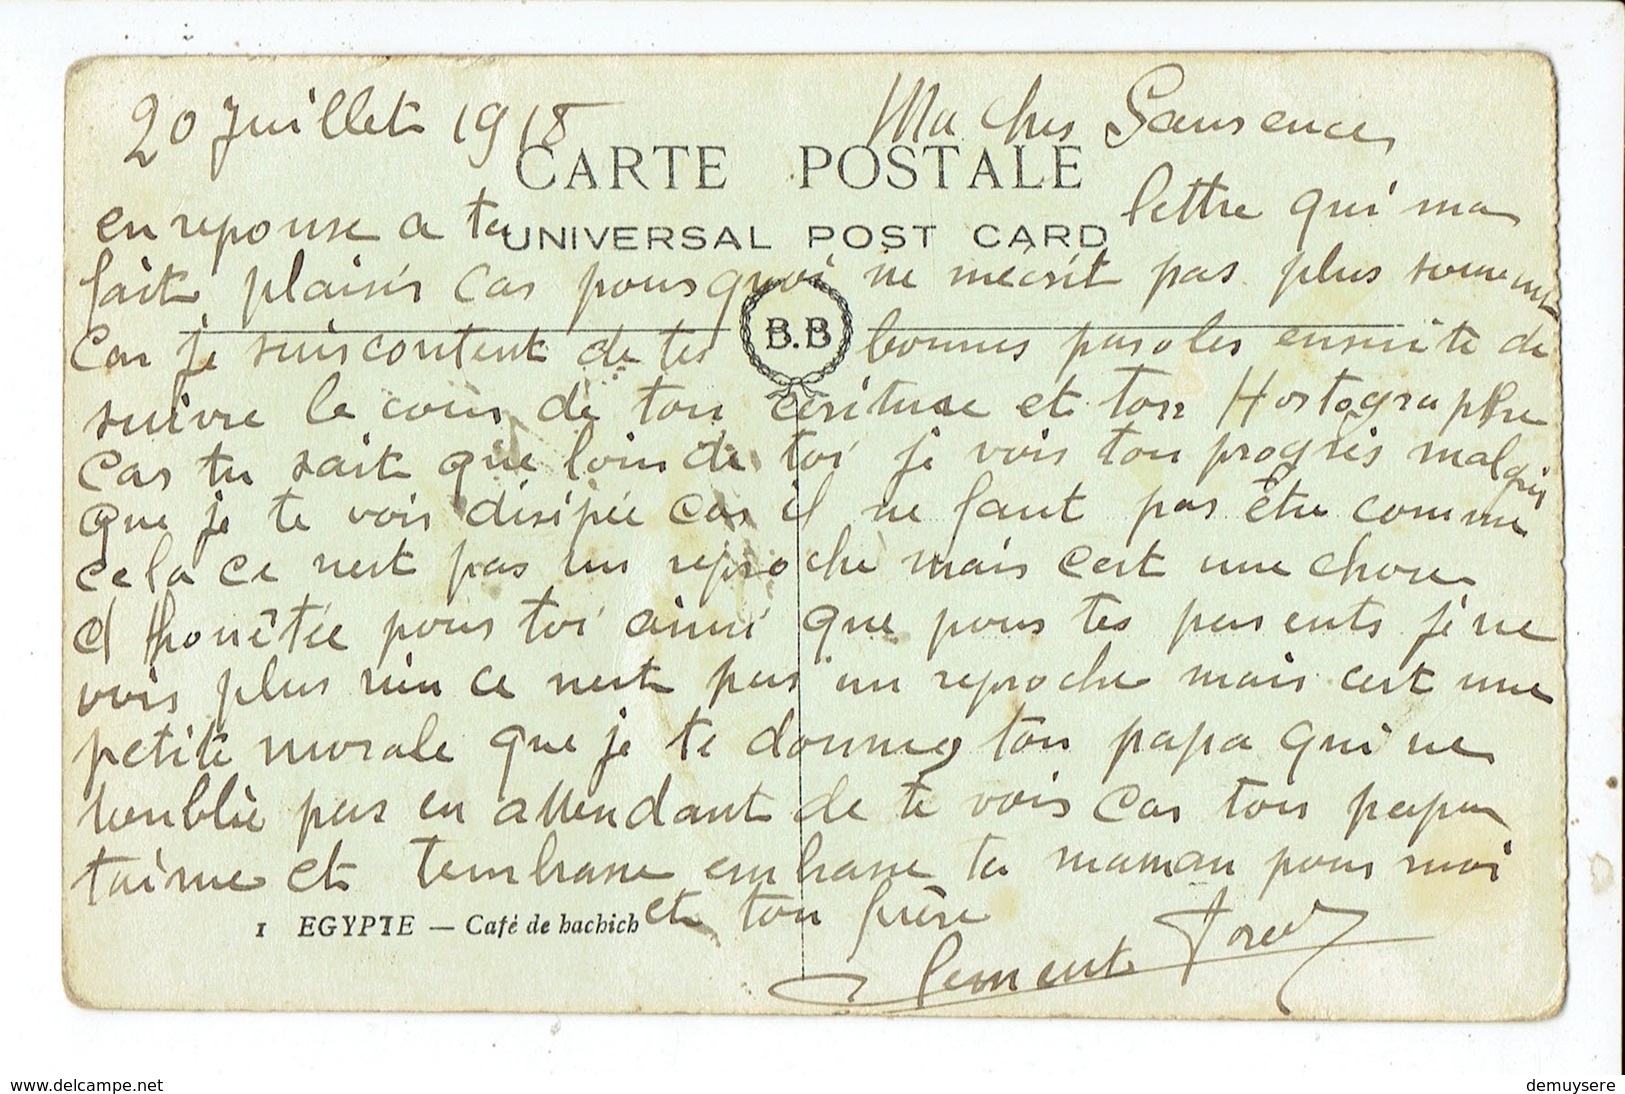 20 Juillet 1918 Ma cher Laurence
CARTE POSTALE
en reponse a ta lettre qui ma
UNIVERSAL POST CARD
fait plaisir car pourquoi ne mecrit pas plus souvent
B.B
car je suis content de tes bonnes paroles ensuite de
suivre le cour de ton écriture et ton Hortographe
car tu sait que loin de toi je vois ton progrès malgré
que je te vois disipée car il ne faut pas Être comme
cela ce nest pas un reproche mais cest une chose
d'honêtée pour toi ainsi que pour tes parents je ne
vois plus rien ce nest pas un reproche mais cest une
petite morale que je te donne ton papa qui ne
toublie pas en attendant de te voir car ton papa
taime et tembrasse embrasse ta maman pour moi
et ton frère
1 EGYPTE — Café de hachich
Clement
www.delcampe.net
demuysere